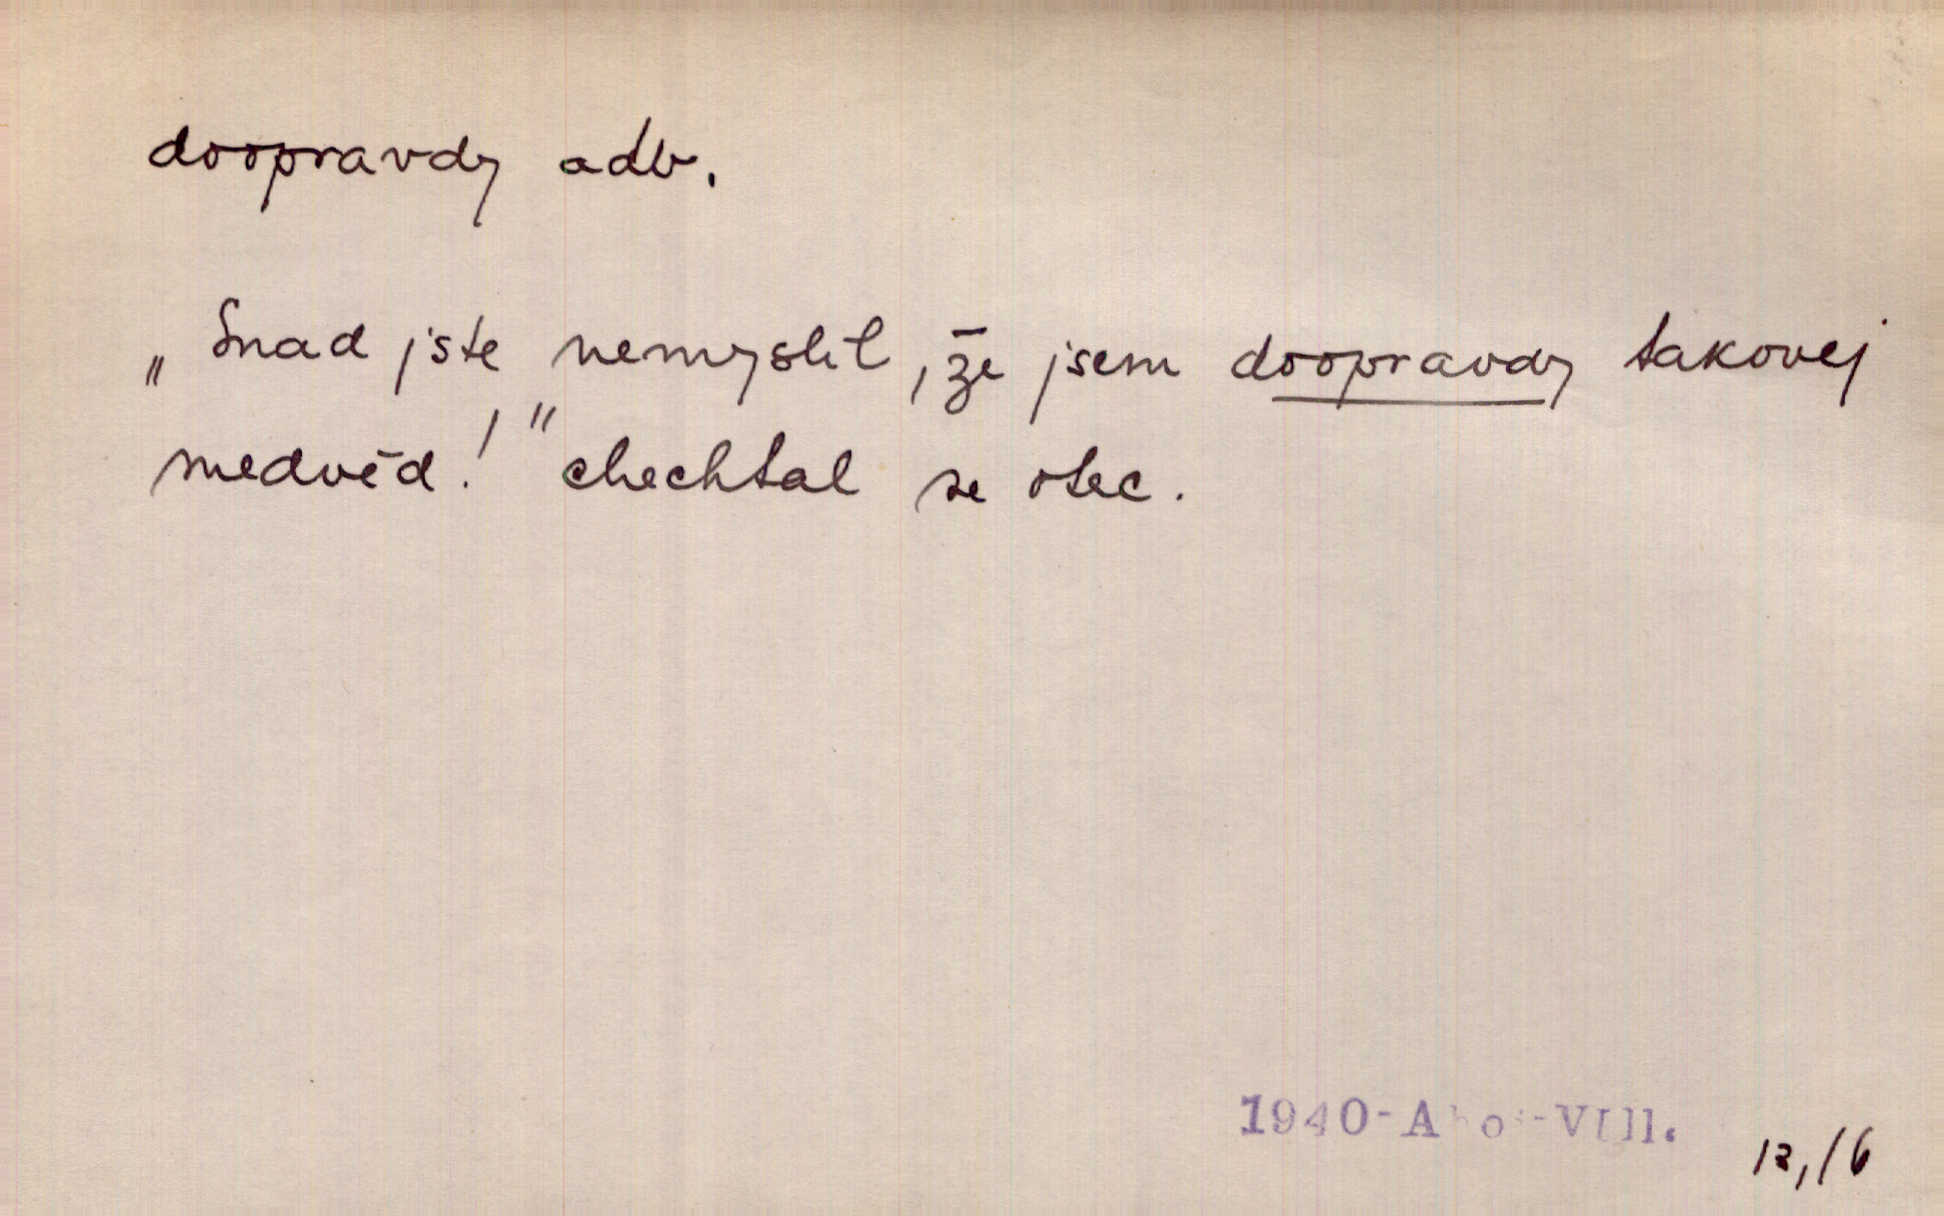 doopravdy adv.
„Snad jste nemyslil, že jsem doopravdy takovej
medvěd!" chechtal se otec.
1940-Ahoj-VIII.
12,/6